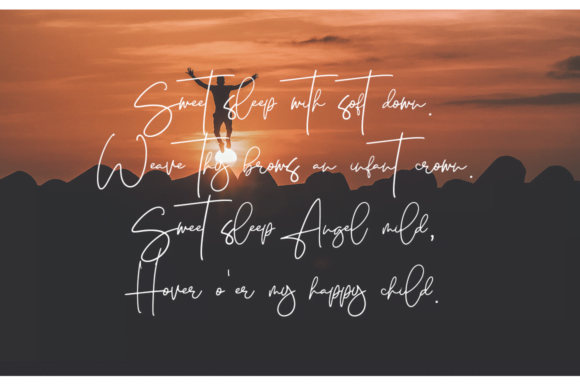 Sweet sleep with soft down.
Weave thy brows an infant crown.
Sweet sleep Angel mild,
Hover o'er my happy child.